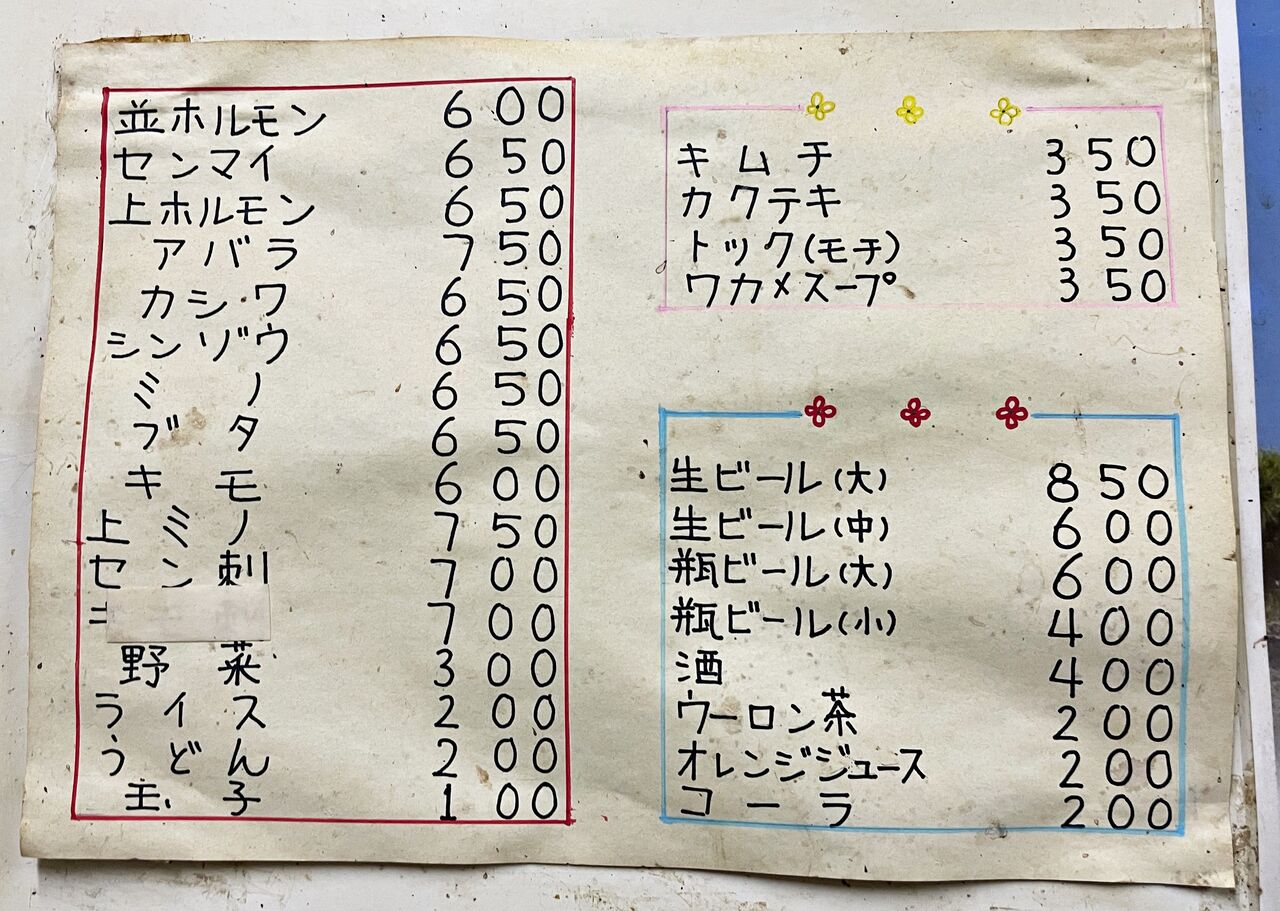 並ホルモン 600
センマイ 650
上ホルモン 650
アバラ 750
カシワ 650
シンゾウ 650
ミノ 650
ブタ 650
キモ 600
上ミノ 750
セン刺 700
700
野菜 300
ライス 200
うどん 200
玉子 100
キムチ 350
カクテキ 350
トック(モチ) 350
ワカメスープ 350
生ビール(大) 850
生ビール(中) 600
瓶ビール(大) 600
瓶ビール(小) 400
酒 400
ウーロン茶 200
オレンジジュース 200
コーラ 200